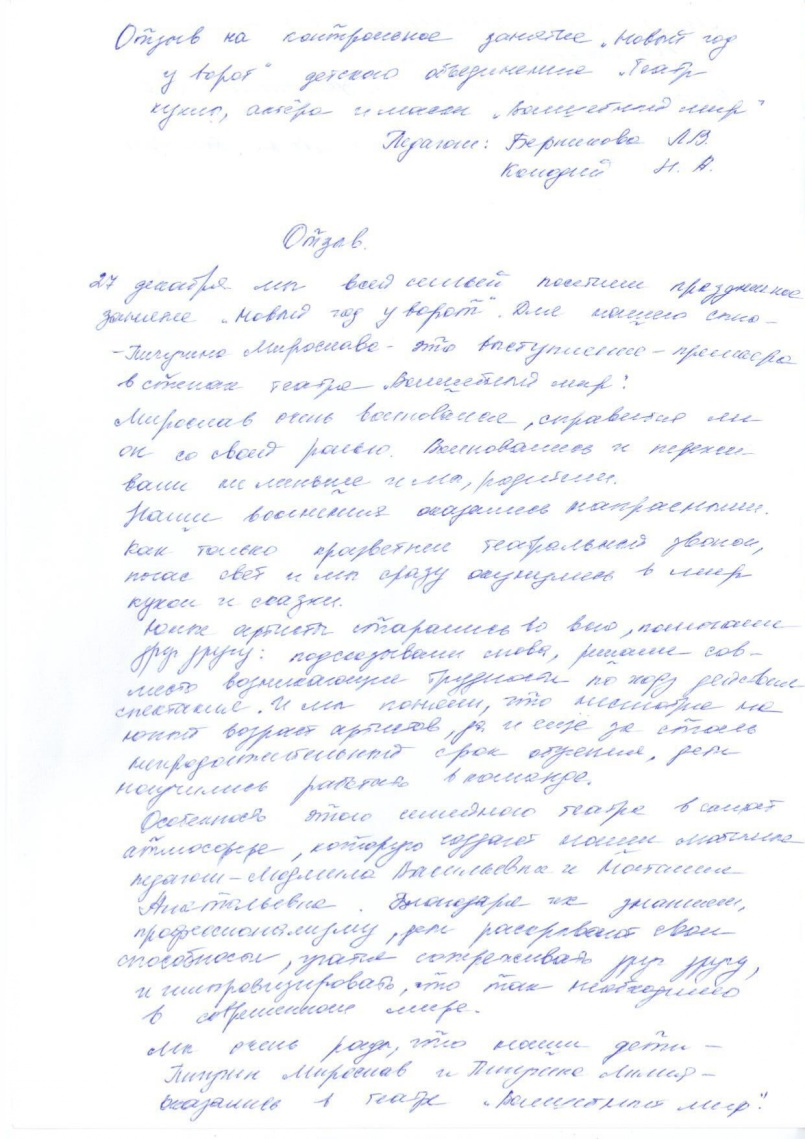 Отзыв на контрольное занятие „Новый год
у ворот" детского объединения „Театр
куклы, актёра и маски „Волшебный мир"
Педагоги: Л.В.
Н. А.
Отзыв.
27 декабря мы всей семьёй посетили праздничное
занятие „Новый год у ворот". Для нашего сына –
Мирослава – это выступление – премьера
в стенах театра „Волшебный мир".
Мирослав очень волновался, справится ли
он со своей ролью. Волновались и пережи-
вали не меньше и мы, родители.
Наши волнения оказались напрасными.
Как только прозвенел театральный звонок,
погас свет и мы сразу окунулись в мир
кукол и сказки.
Юные артисты старались во всю, помогали
друг другу: подсказывали слова, решали сов-
место возникающие трудности по ходу действия
спектакля. И мы поняли, что несмотря на
юный возраст артистов, да и ещё за столь
непродолжительный срок обучения, дети
научились работать в команде.
Особенность этого семейного театра в самой
атмосфере, которую создают наши
педагоги – Людмила Васильевна и Наталия
Анатольевна. Благодаря их знаниям,
профессионализму, дети раскрывают свои
способности, учатся сопереживать друг другу,
и импровизировать, что так необходимо
в современном мире.
Мы очень рады, что наши дети –
Мирослав и –
оказались в театре „Волшебный мир".